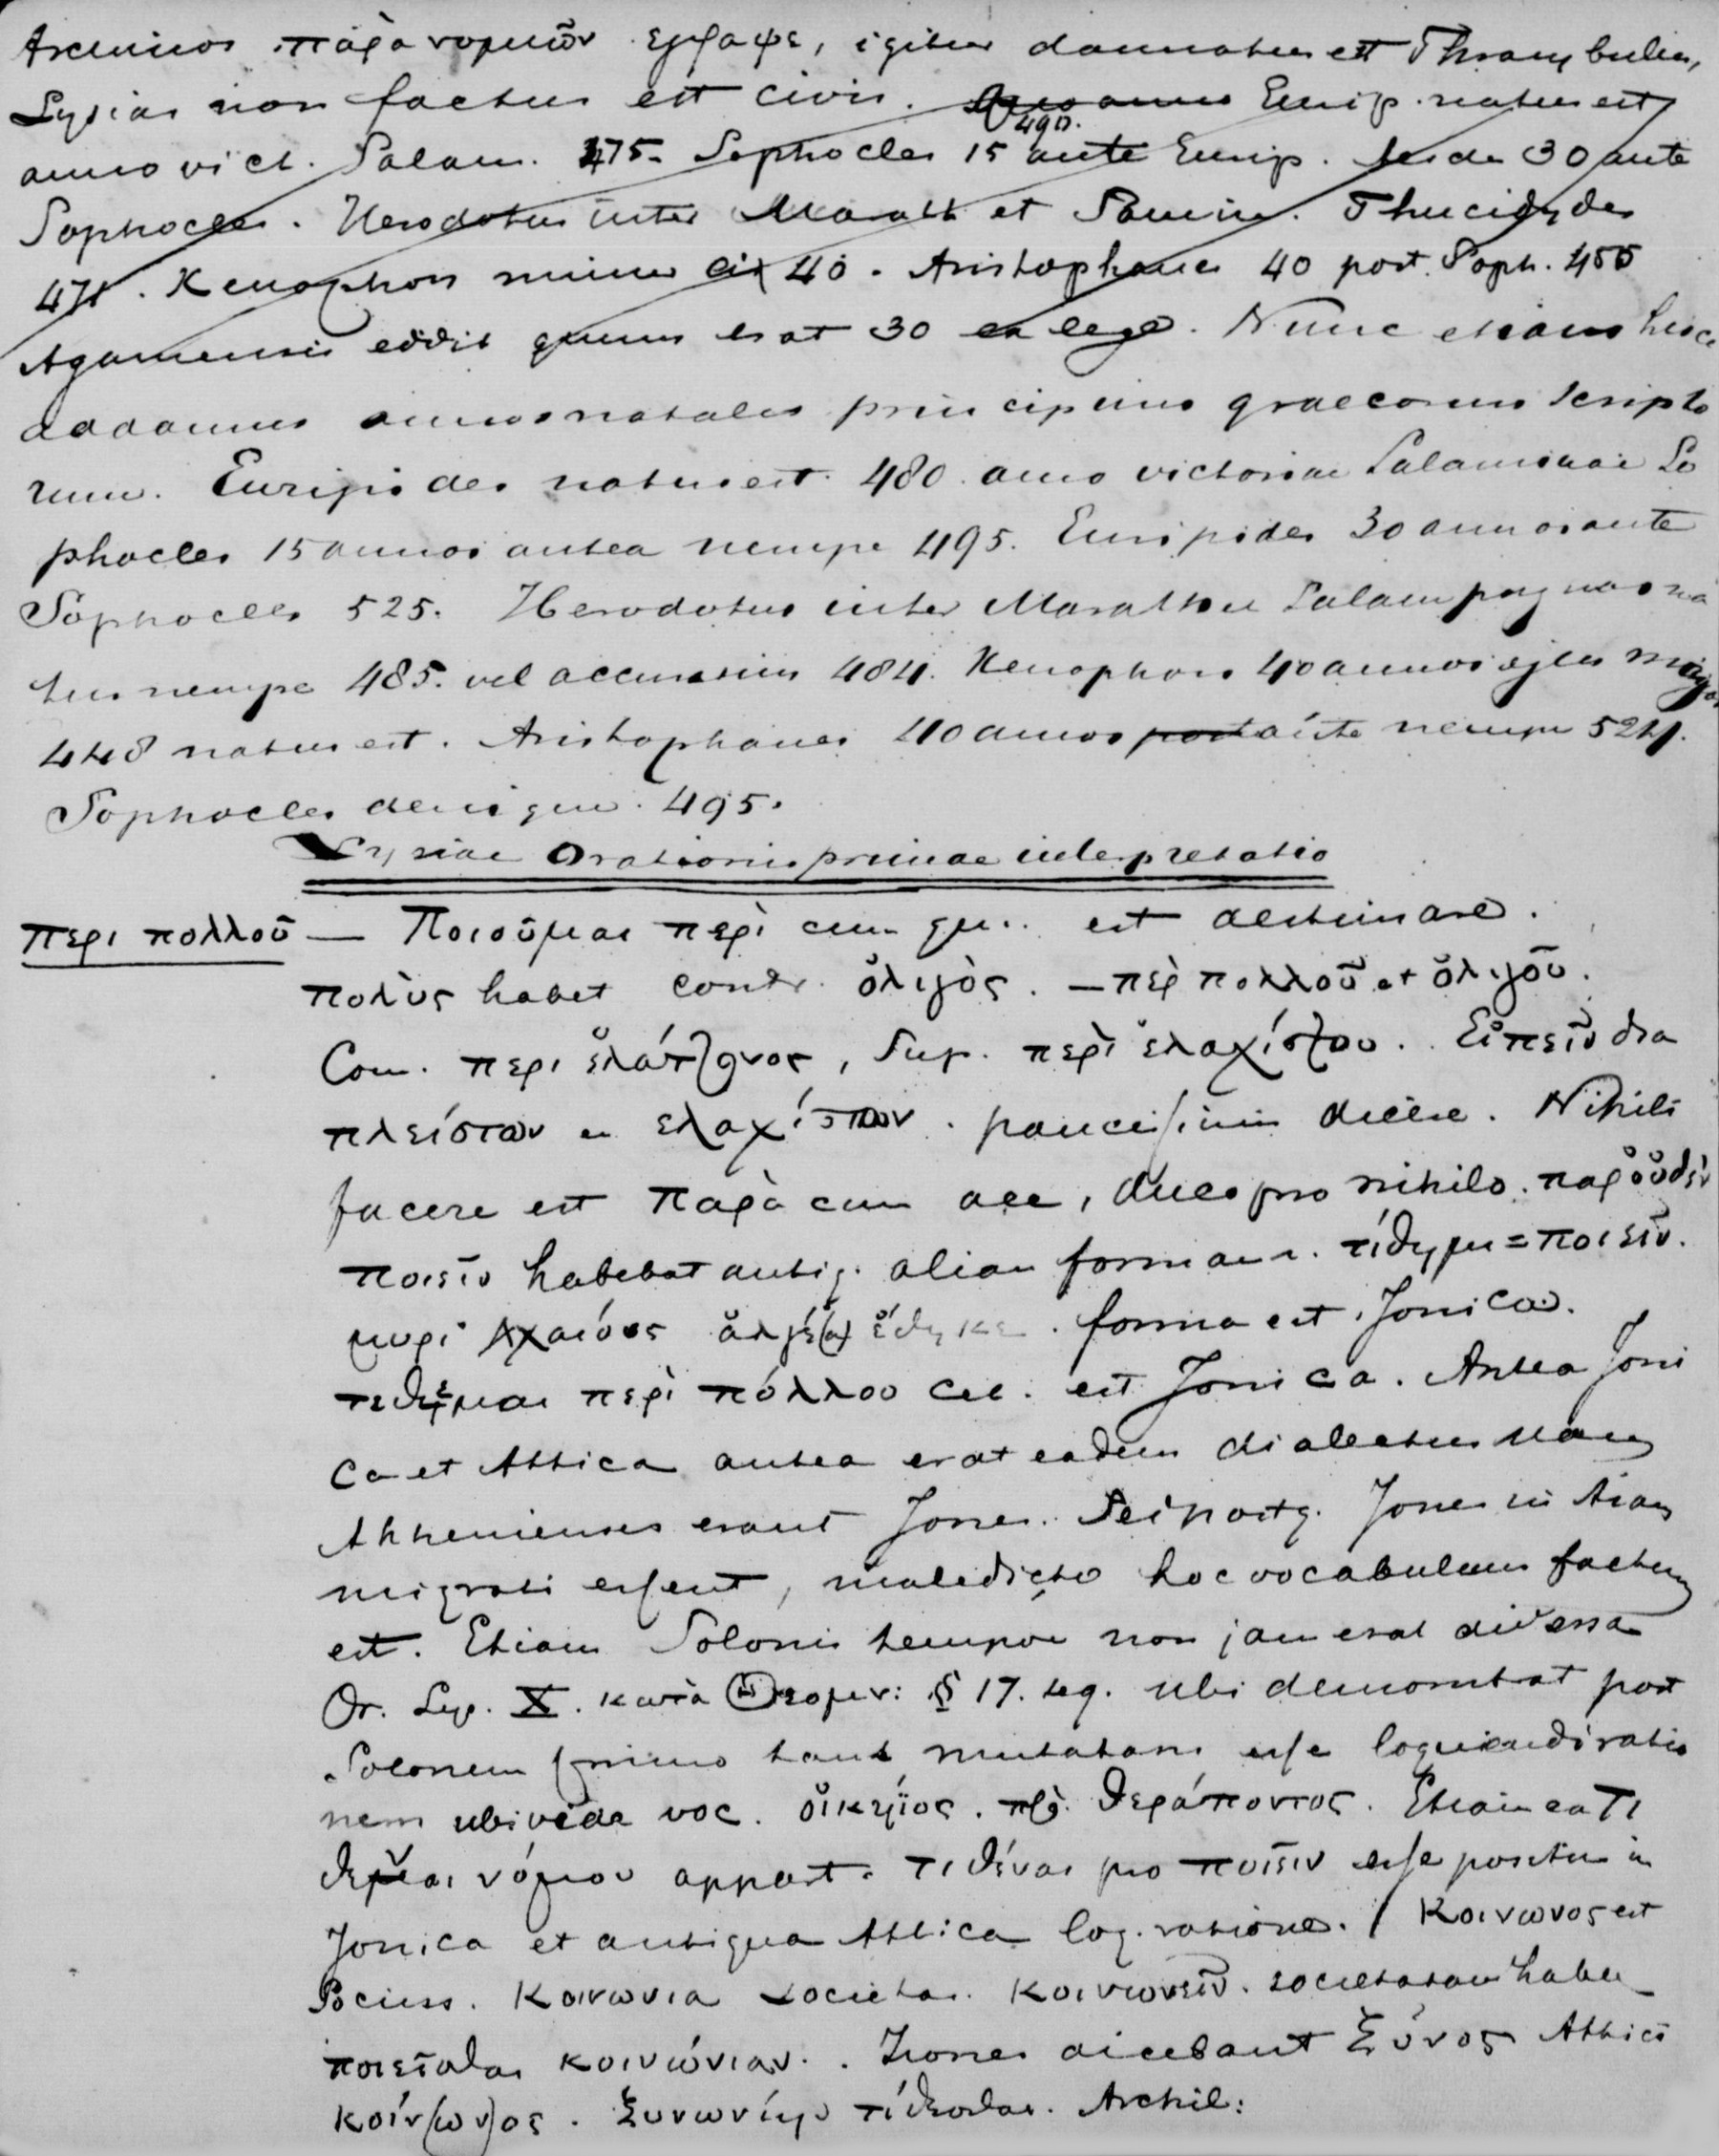 Archinos παρὰ νομιῶν εγραψε, igitur damnatus est Thrasybulus,
Lysias non factus est civis. Quo anno Eurip. natus est
490.
anno vict. Salam. 475. Sophocles 15 ante Eurip. 30 ante
Sophocles. Herodotus inter Marath et Thucidydes
471. Xenophon 40. Aristophanes 40 post. Soph. 455
edidit quum erat 30 ea lege. Nunc etiam hisce
addamus annos natales principum graecorum scripto
rum. Euripides natus est. 480. anno victoriae Salaminae So
phocles 15 annos antea nempe 495. Euripides 30 annos ante
Sophocles 525. Herodotus inter Marathon Salam pugnas na
tus nempe 485. vel accuratius 484. Xenophon 40 annos
448 natus est. Aristophanes 40 annos post ante nempe 524.
Sophocles denique. 495.
Lysiae Orationis primae interpretatio
περι πολλοῦ — Ποιοῦμαι περὶ cum gen. est aestimare.
πολὺς habet contr. ὄλιγὸς. — περ πολλοῦ et ὄλιγοῦ.
Com. περι ἐλάττονος, Sup. περὶ ἐλαχίστου. Εἰπεῖν δια
πλείστων ελαχίστων. paucissimis dicere. Nihili
facere est παρὰ cum acc, duco pro nihilo. παρ οὐδὲν
ποιεῖν habebat antiq. aliam formam. τίθημι = ποιεῖν.
μυρί Ἀχαιόυς ἄλγέ(α) ἔθηκε. forma est Jonica.
τεθεμαι περὶ πόλλου cet. est Jonica. Antea Joni
ca et Attica antea erat eadem dialectus nam
Athenienses erant Jones. Sed postq. Jones in Asiam
migrati essent, maledicto hoc vocabulum factum
est. Etiam Solonis tempore non jam erat diversa
Or. Lys. X. κατὰ Θεομν: § 17. seq. ubi demonstrat post
Solonem mutatam esse loquendi ratio
nem ubi vide voc. οἰκηϊος. πρὸ. θεράποντος. Etiam ea τι
νόμου apparet. τιθέναι pro ποιεῖν esse positum in
Jonica et antiqua Attica log. ratione. / Κοινωνος est
Socius. Κοινωνια societas. Κοινωνεῖν. societatem habere
ποιεῖσθαι κοινώνιαν. Jones dicebant Ξύνος Attici
κοίν(ων)ος. ξυνωνίην τίθεσθαι. Archil: